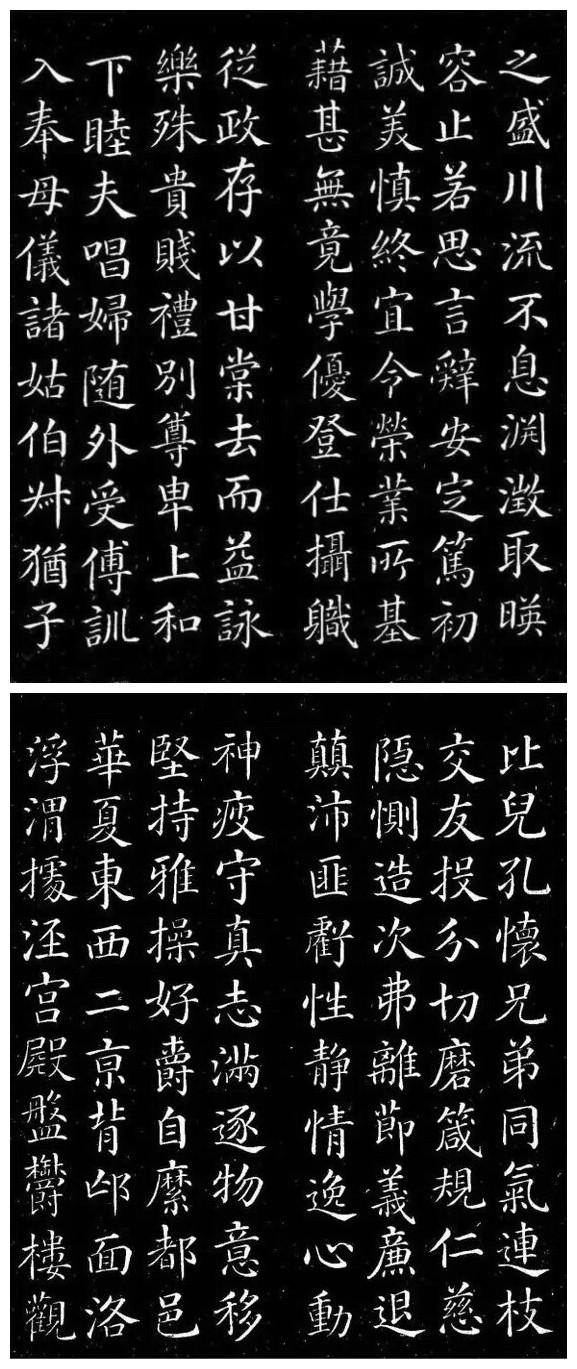 之盛川流不息淵澂取暎
容止若思言辭安定篤初
誠美慎終宜令榮業所基
藉甚無竟學優登仕攝職
從政存以甘棠去而益詠
樂殊貴賤禮別尊卑上和
下睦夫唱婦随外受傅訓
入奉母儀諸姑伯叔猶子
比兒孔懷兄弟同氣連枝
交友投分切磨箴規仁慈
隠惻造次弗離節義廉退
顛沛匪虧性静情逸心動
神疲守真志滿逐物意移
堅持雅操好爵自縻都邑
華夏東西二京背邙面洛
浮渭據涇宮殿盤鬱樓觀